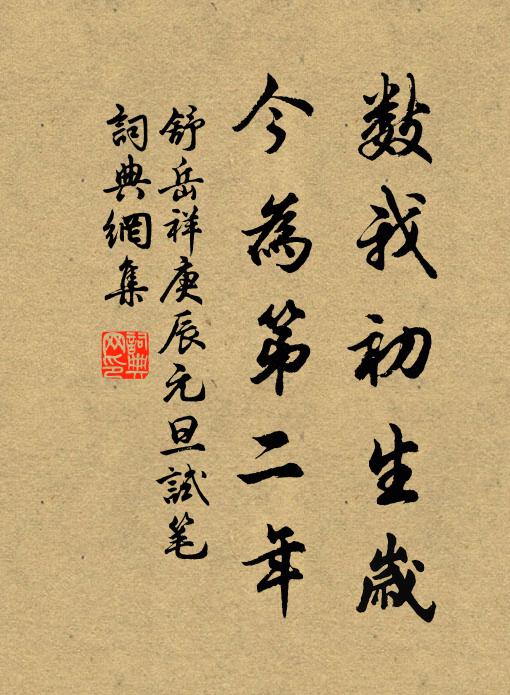 數我初生歲
今為第二年
舒岳祥庚辰元旦試笔
詞典網集
詞典网印